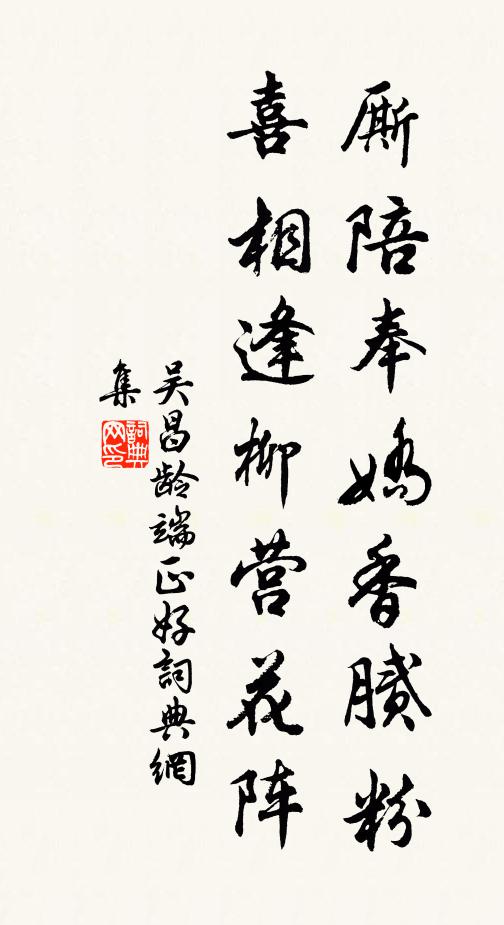 厮陪奉娇香腻粉
喜相逢柳营花阵
吴昌龄端正好詞典網
集
詞典网印